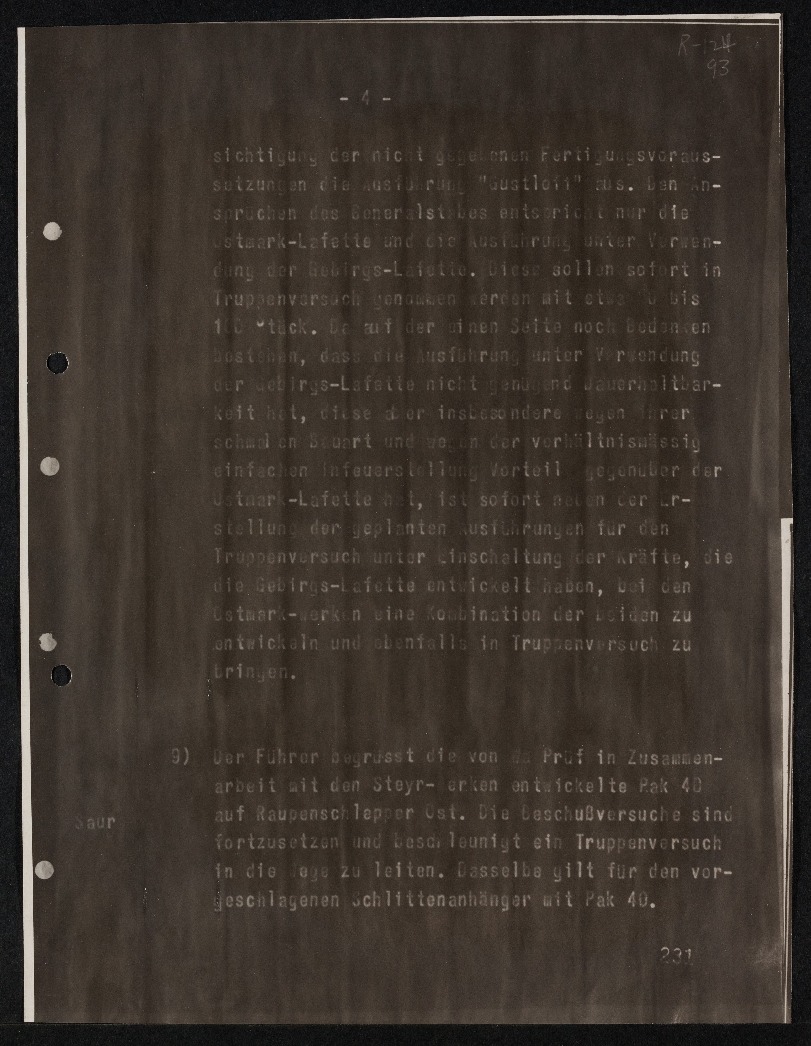 R-124
93
- 4 -
sichtigung der nicht gegebenen Fertigungsvoraus-
setzungen die Ausführung "Gustloff" aus. Den An-
sprüchen des Generalstabes entspricht nur die
Ostmark-Lafette und die Ausführung unter Verwen-
dung der Gebirgs-Lafette. Diese sollen sofort in
Truppenversuch genommen werden mit etwa bis
100 Stück. Da auf der einen Seite noch Bedenken
bestehen, dass die Ausführung unter Verwendung
der Gebirgs-Lafette nicht genügend Dauerhaltbar-
keit hat, diese aber insbesondere wegen ihrer
schmalen Bauart und wegen der verhältnismässig
einfachen Infeuerstellung Vorteil gegenüber der
Ostmark-Lafette hat, ist sofort neben der Er-
stellung der geplanten Ausführungen für den
Truppenversuch unter Einschaltung der Kräfte, die
die Gebirgs-Lafette entwickelt haben, bei den
Ostmark-Werken eine Kombination der beiden zu
entwickeln und ebenfalls in Truppenversuch zu
bringen.
9) Der Führer begrüsst die von Wa Prüf in Zusammen-
arbeit mit den Steyr-Werken entwickelte Pak 40
auf Raupenschlepper Ost. Die Beschußversuche sind
Saur
fortzusetzen und beschleunigt ein Truppenversuch
in die Wege zu leiten. Dasselbe gilt für den vor-
geschlagenen Schlittenanhänger mit Pak 40.
231